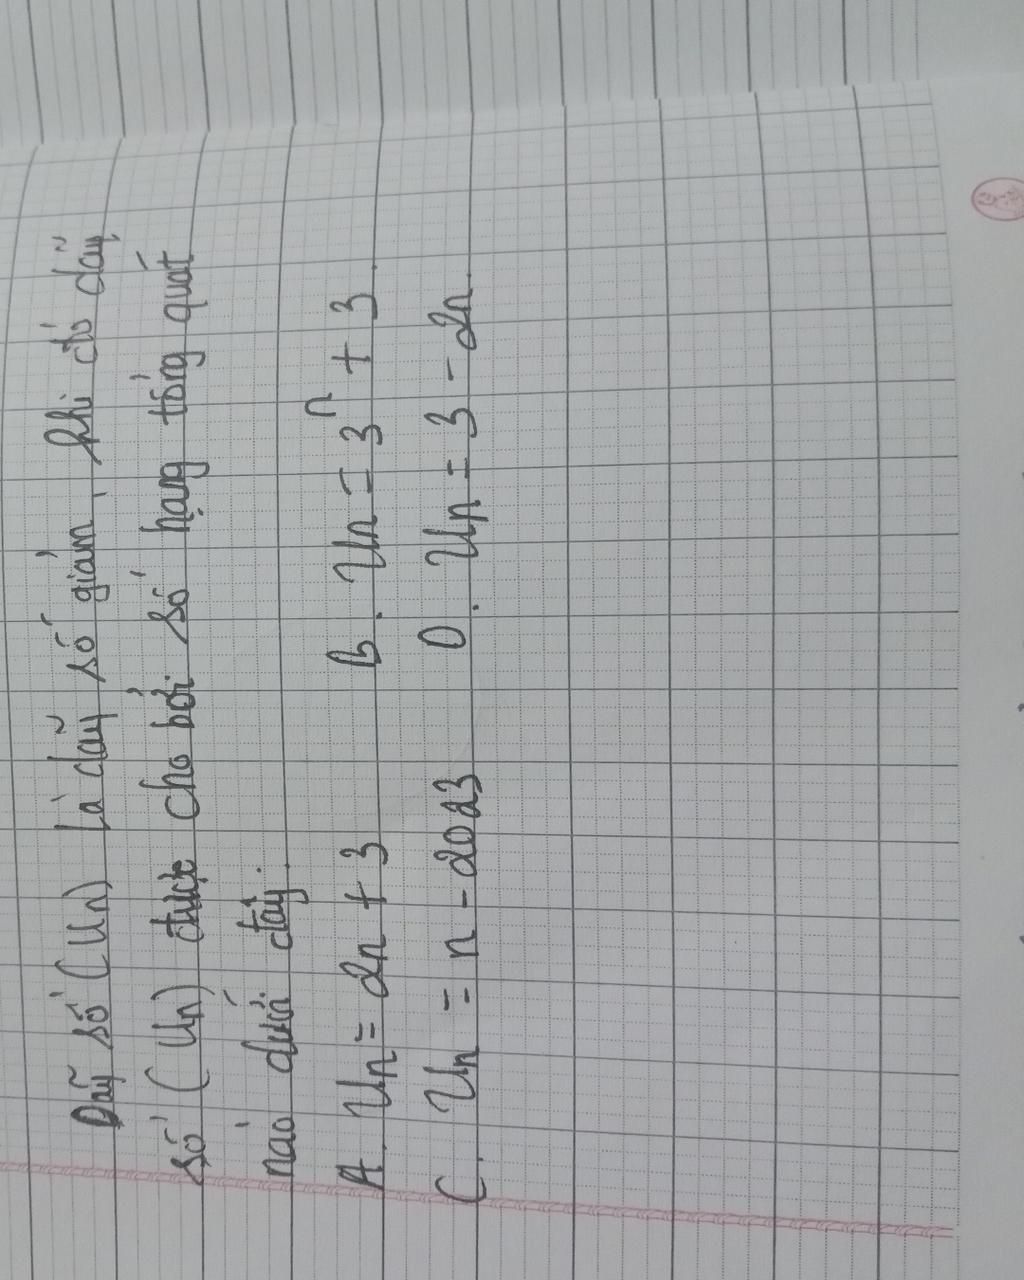 Dãy số (Un) là dãy số giảm, khi đó dãy
số (Un) được cho bởi số hạng tổng quát
nào dưới đây.
A. Un = 2n + 3 B. Un = 3ⁿ + 3
C. Un = n - 2023 D. Un = 3 - 2n